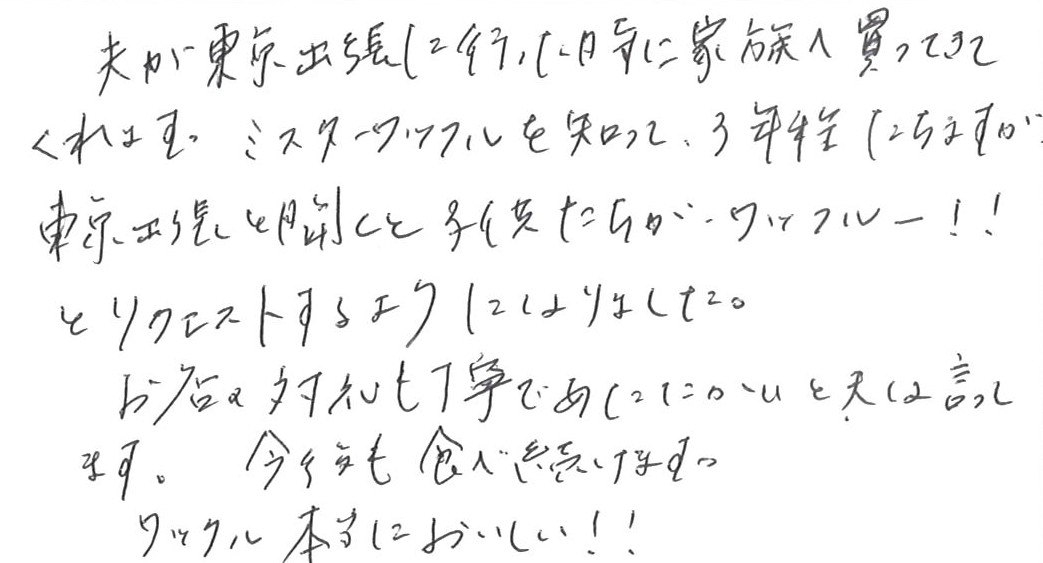 夫が東京出張に行った時に家族へ買ってきて
くれます。ミスターワッフルを知って、3年程たちますが
東京出張と聞くと子供たちが、ワッフルー!!
とリクエストするようになりました。
お店の対応も丁寧であたたかいと夫は言って
ます。 今後も食べ続けます。
ワッフル本当においしい!!